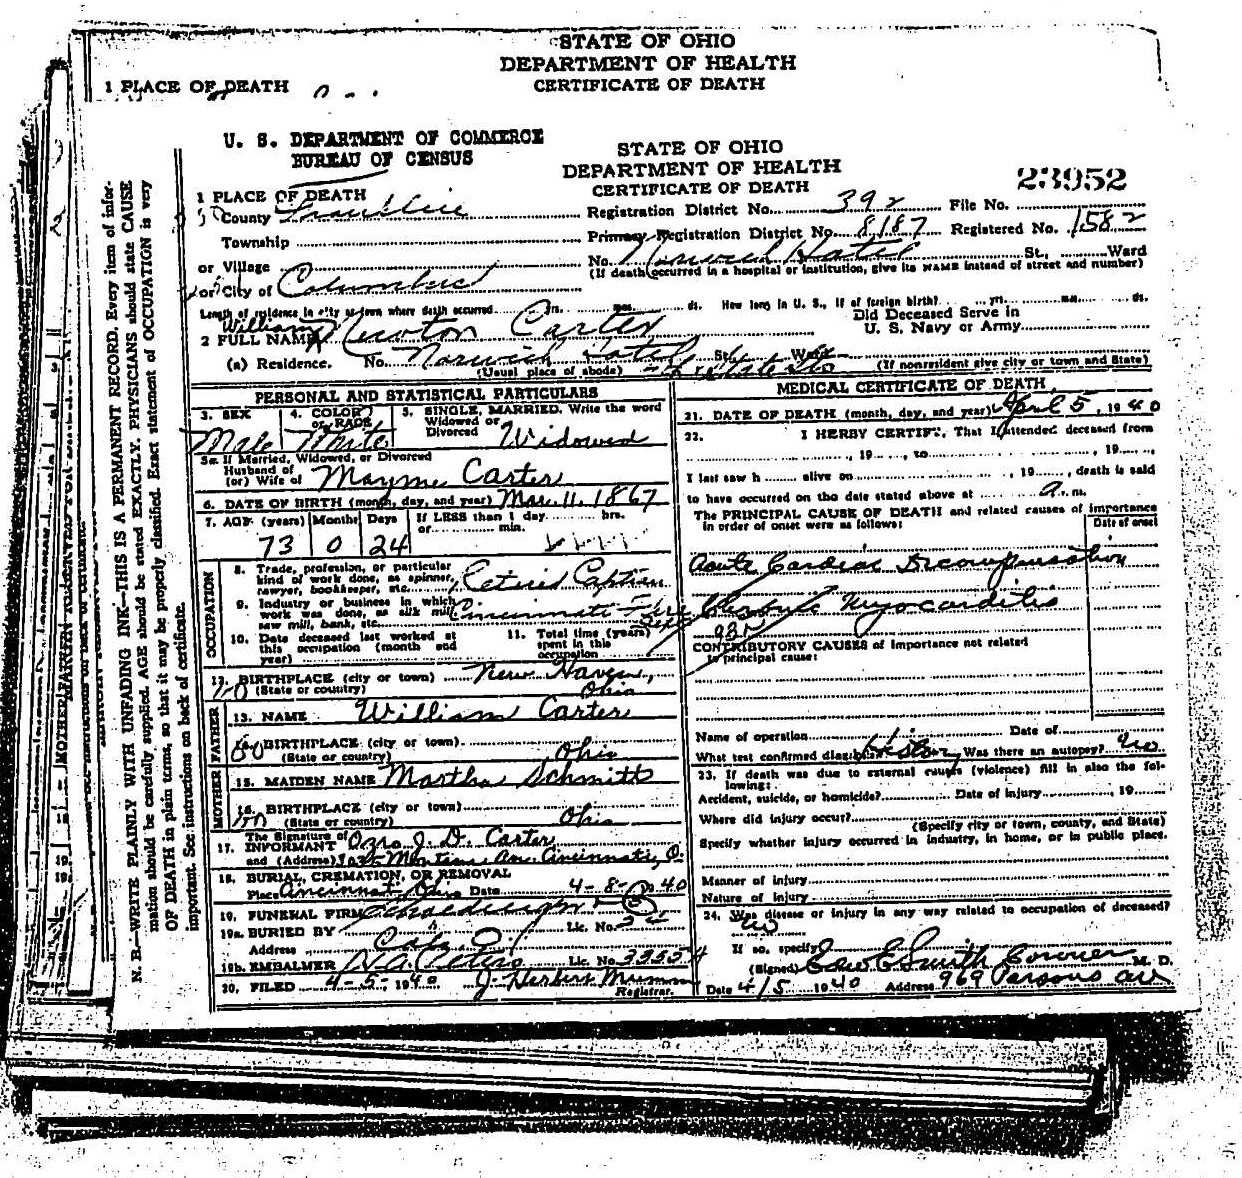 STATE OF OHIO
DEPARTMENT OF HEALTH
CERTIFICATE OF DEATH
1 PLACE OF DEATH
U. S. DEPARTMENT OF COMMERCE
BUREAU OF CENSUS
STATE OF OHIO
DEPARTMENT OF HEALTH
CERTIFICATE OF DEATH
23952
1 PLACE OF DEATH
County Franklin
Registration District No. 392 File No.
Township
Primary Registration District No. 8187 Registered No. 1582
or Village
No. Norwich Hotel St., Ward
(If death occurred in a hospital or institution, give its NAME instead of street and number)
or City of Columbus
Length of residence in city or town where death occurred yrs. mos. ds. How long in U. S., if of foreign birth? yrs. mos. ds.
2 FULL NAME William Newton Carter
Did Deceased Serve in
U. S. Navy or Army
(a) Residence. No. Norwich Hotel St., Ward
(Usual place of abode) (If nonresident give city or town and State)
PERSONAL AND STATISTICAL PARTICULARS
3. SEX Male
4. COLOR or RACE White
5. SINGLE, MARRIED, Write the word
Widowed or
Divorced Widowed
5a. If Married, Widowed, or Divorced
Husband of
(or) Wife of Mayme Carter
6. DATE OF BIRTH (month, day, and year) Mar. 11, 1867
7. AGE (years) Months Days If LESS than 1 day hrs.
or min.
73 0 24
OCCUPATION
8. Trade, profession, or particular
kind of work done, as spinner,
sawyer, bookkeeper, etc. Retired Captian
9. Industry or business in which
work was done, as silk mill,
saw mill, bank, etc. Cincinnati Fire Dept
10. Date deceased last worked at
this occupation (month and
year)
11. Total time (years)
spent in this
occupation
12. BIRTHPLACE (city or town) New Haven,
(State or country) Ohio
FATHER
13. NAME William Carter
14. BIRTHPLACE (city or town)
(State or country) Ohio
MOTHER
15. MAIDEN NAME Martha Schmitt
16. BIRTHPLACE (city or town)
(State or country) Ohio
The Signature of
17. INFORMANT Ozro J. D. Carter
and (Address) Montana Av. Cincinnati, O.
18. BURIAL, CREMATION, OR REMOVAL
Place Cincinnati Ohio Date 4-8-1940
19. FUNERAL FIRM
19a. BURIED BY Lic. No.
Address Cols. O.
19b. EMBALMER Lic. No.
20. FILED 4-5-1940 J. Herbert
Registrar.
MEDICAL CERTIFICATE OF DEATH
21. DATE OF DEATH (month, day, and year) April 5, 1940
22. I HERBY CERTIFY, That I attended deceased from
, 19 , to , 19 ,
I last saw h alive on , 19 , death is said
to have occurred on the date stated above at a. m.
The PRINCIPAL CAUSE OF DEATH and related causes of importance
in order of onset were as follows:
Date of onset
Acute Cardiac Decompensation
Myocarditis
CONTRIBUTORY CAUSES of importance not related
to principal cause:
Name of operation Date of
What test confirmed diagnosis? History Was there an autopsy? No
23. If death was due to external causes (violence) fill in also the following:
Accident, suicide, or homicide? Date of injury , 19
Where did injury occur?
(Specify city or town, county, and State)
Specify whether injury occurred in industry, in home, or in public place.
Manner of injury
Nature of injury
24. Was disease or injury in any way related to occupation of deceased?
No
If so, specify
(Signed) Edw E Smith Coroner M. D.
Date 4/5 1940 Address 969 Parsons av
N. B.—WRITE PLAINLY WITH UNFADING INK—THIS IS A PERMANENT RECORD. Every item of information should be carefully supplied. AGE should be stated EXACTLY. PHYSICIANS should state CAUSE OF DEATH in plain terms, so that it may be properly classified. Exact statement of OCCUPATION is very important. See instructions on back of certificate.